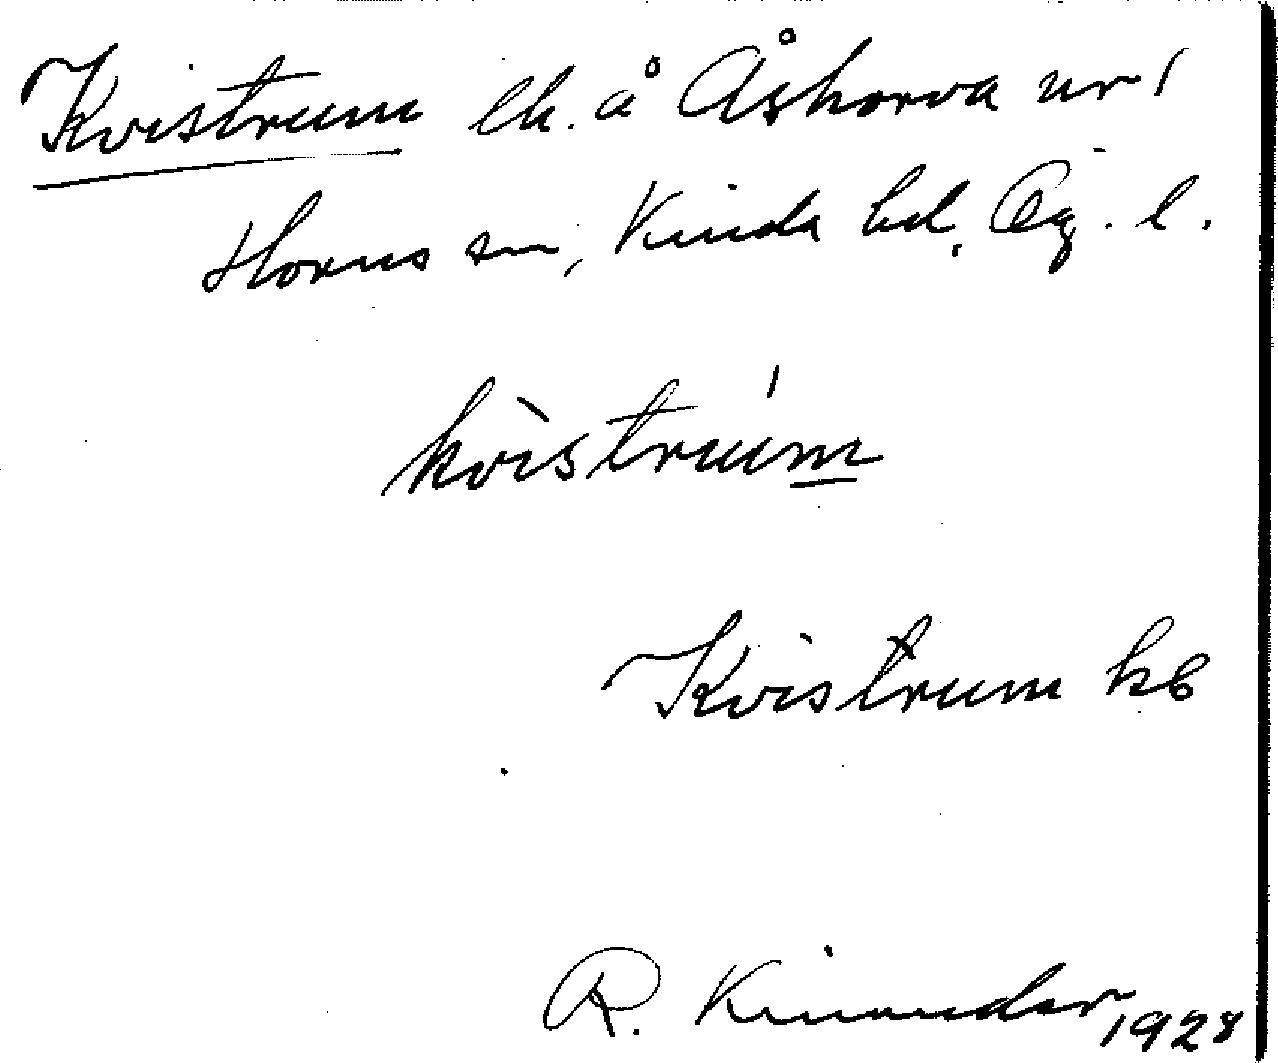 Kvistrum lh. å Åshorva nr 1
Horns sn, Kinda hd, Ög. l.
kvìstrúm
Kvistrum kb
R. Kinander 1928